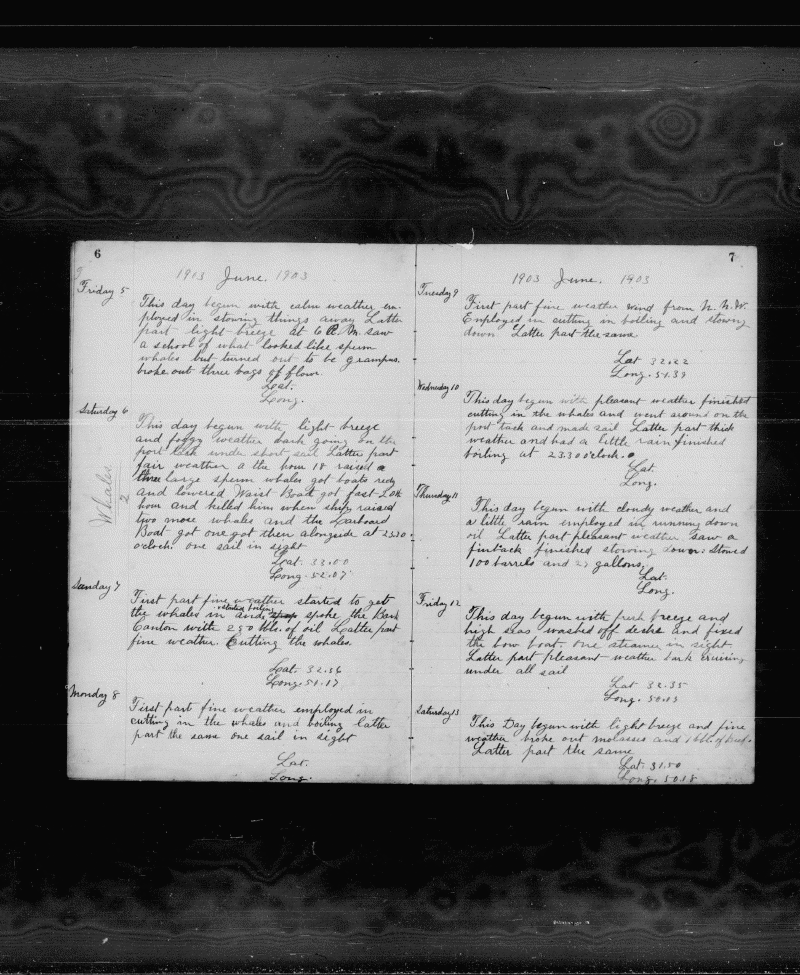 6
1903 June. 1903
Friday 5
This day begun with calm weather em-
ployed in stowing things away Latter
part light breeze at 6 P.M. saw
a school of what looked like sperm
whales but turned out to be grampus.
broke out three bags of flour
Lat.
Long.
Saturday 6
This day begun with light breeze
and foggy weather bark going on the
port tack under short sail Latter part
fair weather a the hour 18 raised a
three large sperm whales got boats redy
and lowered Waist Boat got fast
hour and killed him when ship raised
two more whales and the Larboard
Boat got one got them alongside at 23.30
o'clock. one sail in sight
Whales.
2
Lat. 33.00
Long. 52.07
Sunday 7
First part fine weather started to get
the whales in and started boiling spoke the Bark
Canton with 250 bbls. of oil Latter part
fine weather. Cutting the whales.
Lat. 32.36
Long. 51.17
Monday 8
First part fine weather employed in
cutting in the whales and boiling latter
part the same one sail in sight
Lat.
Long.
7
1903 June. 1903
Tuesday 9
First part fine weather wind from N.N.W.
Employed in cutting in boiling and stowing
down. Latter part the same
Lat 32.22
Long. 51.39
Wednesday 10
This day begun with pleasant weather finished
cutting in the whales and went around on the
port tack and made sail Latter part thick
weather and had a little rain finished
boiling at 23.30 o'clock.
Lat.
Long.
Thursday 11
This day begun with cloudy weather and
a little rain employed in running down
oil Latter part pleasant weather saw a
finback finished stowing down: stowed
100 barrels and gallons.
Lat.
Long.
Friday 12
This day begun with fresh breeze and
high seas washed off decks and fixed
the bow boat. one steamer in sight
Latter part pleasant weather bark cruising
under all sail
Lat 32.35
Long. 50.13
Saturday 13
This Day begun with light breeze and fine
weather broke out molasses and 1 bbl. of beef.
Latter part the same
Lat. 31.50
Long. 50.18